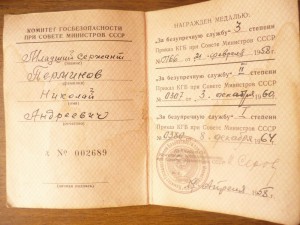 КОМИТЕТ ГОСБЕЗОПАСНОСТИ
ПРИ СОВЕТЕ МИНИСТРОВ СССР
Младший сержант
(звание)
Тертиков
Николай
(имя)
Андреевич
(отчество)
X № 002689
(личная подпись)
НАГРАЖДЕН МЕДАЛЬЮ:
„За безупречную службу" 3 степени
Приказ КГБ при Совете Министров СССР
февраля 1958 г.
„За безупречную службу" II степени
Приказ КГБ при Совете Министров СССР
№ 0307 от 3. декабря 1960.
„За безупречную службу" I степени
Приказ КГБ при Совете Министров СССР
декабря 1964
апреля 1958 г.